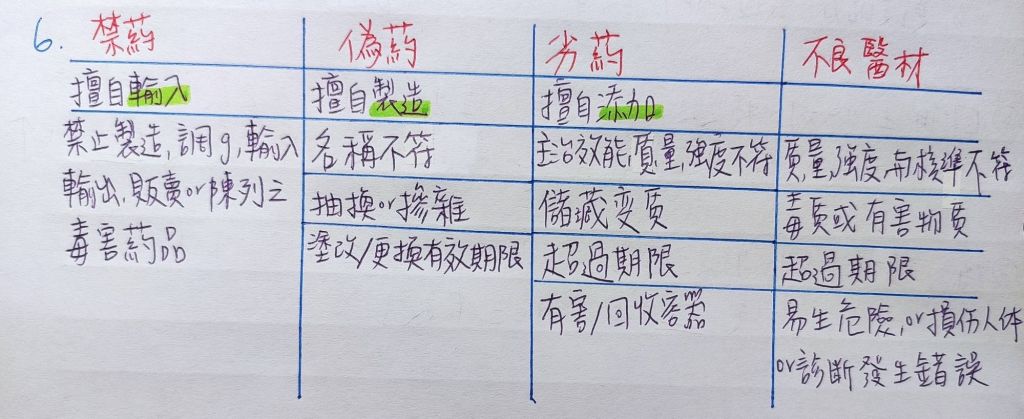 6. 禁药 偽药 劣药 不良醫材
擅自輸入 擅自製造 擅自添加
禁止製造,調g,輸入 名稱不符 主治效能,質量,強度不符 質量,強度,與核準不符
輸出,販賣or陳列之 抽換or摻雜 儲藏变质 毒質或有害物质
毒害药品 塗改/更換有效期限 超過期限 超過期限
有害/回收容器 易生危險,or損伤人体
or診斷發生錯誤